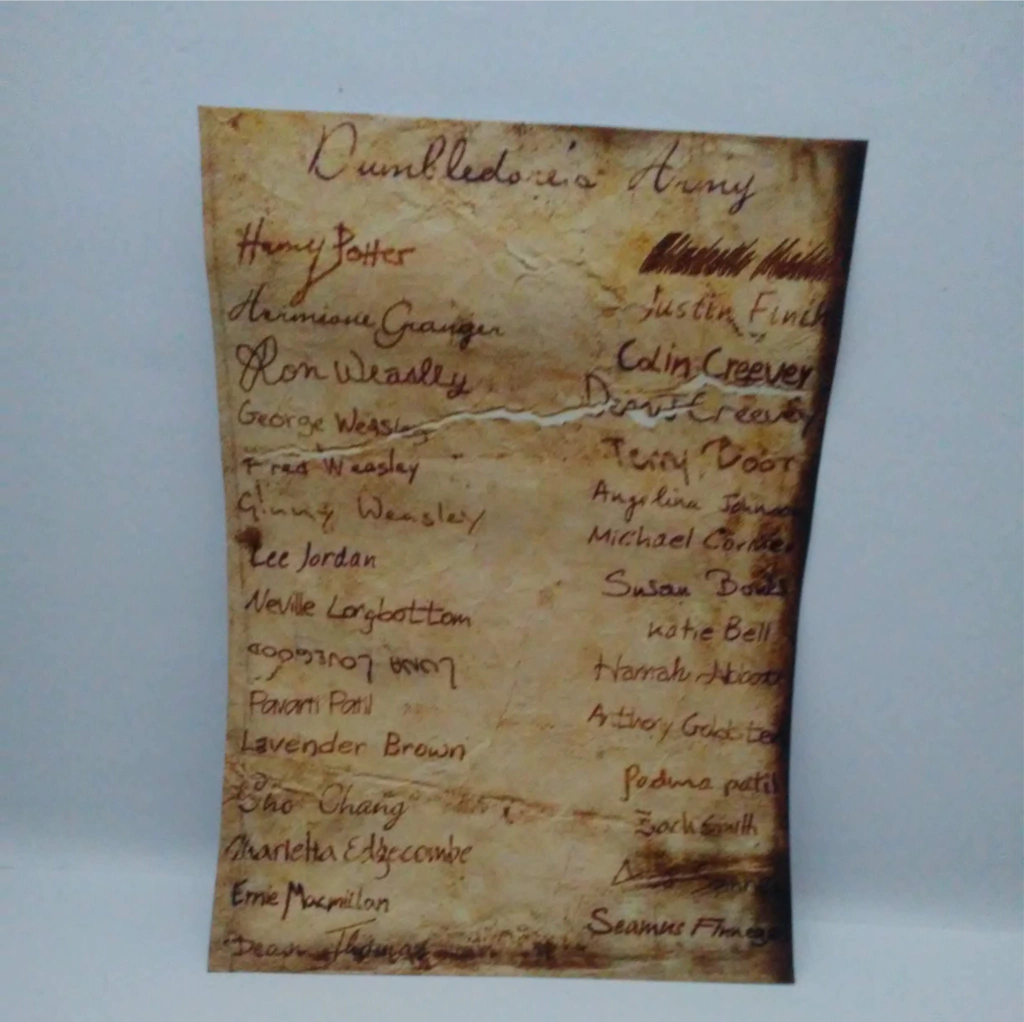 Dumbledore's Army
Harry Potter
Hermione Granger
Ron Weasley
George Weasley
Fred Weasley
Ginny Weasley
Lee Jordan
Neville Longbottom
LUNA LOVEGOOD
Pavarti Patil
Lavender Brown
Cho Chang
Charletta Edgecombe
Ernie Macmillan
Dean Thomas
Justin Finch
Colin Creevey
Dennis Creevey
Terry Boot
Angelina Johnson
Michael Corner
Susan Bones
Katie Bell
Hannah Abbott
Anthony Goldstein
Padma patil
Zach smith
Seamus Finnegan